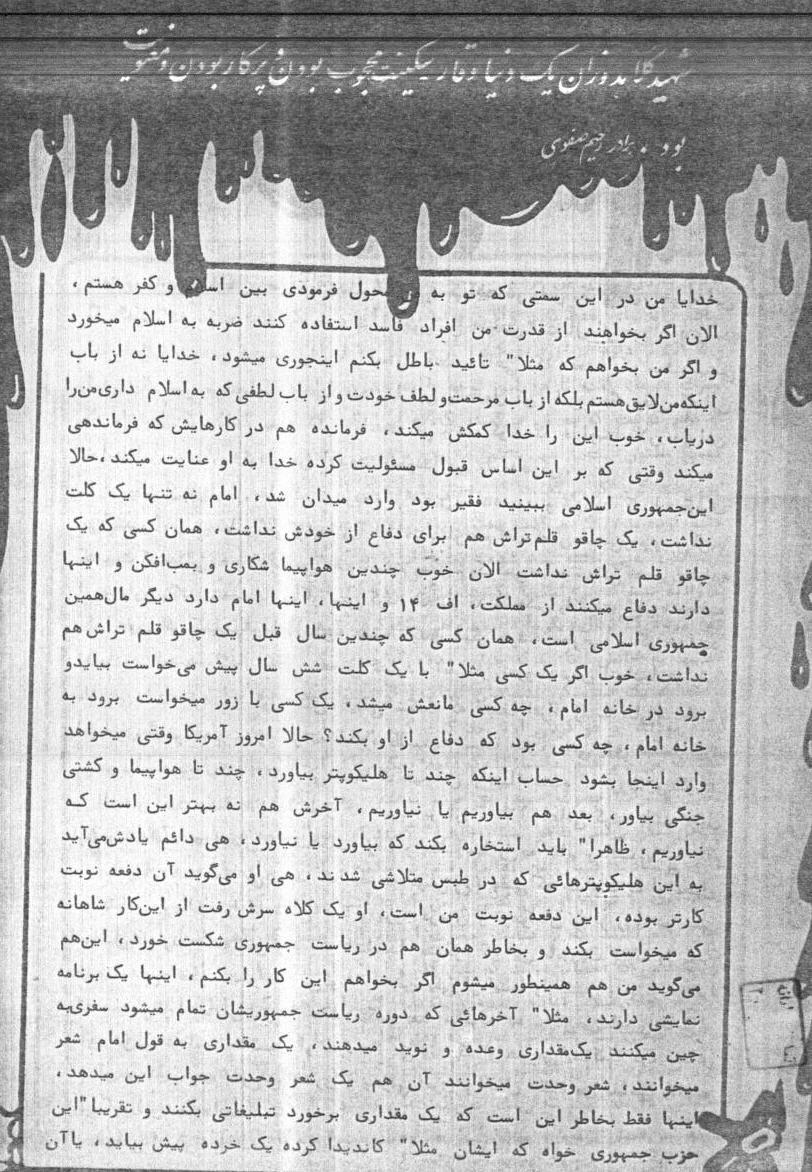 شهید کلاهدوزان یک دنیا وقار سکینت محجوب بودن و پرکار بودن و معنویت
بود . برادر رحیم صفوی
خدایا من در این سمتی که تو به من محول فرمودی بین اسلام و کفر هستم ،
الان اگر بخواهند از قدرت من افراد فاسد استفاده کنند ضربه به اسلام میخورد
و اگر من بخواهم که مثلا" تائید باطل بکنم اینجوری میشود ، خدایا نه از باب
اینکه‌من‌لایق‌هستم بلکه از باب مرحمت‌و لطف خودت و از باب لطفی که به‌اسلام داری‌من‌را
دریاب ، خوب این را خدا کمکش میکند ، فرمانده هم در کارهایش که فرماندهی
میکند وقتی که بر این اساس قبول مسئولیت کرده خدا به او عنایت میکند ،حالا
این‌جمهوری اسلامی ببینید فقیر بود وارد میدان شد ، امام نه تنها یک کلت
نداشت ، یک چاقو قلم‌تراش هم برای دفاع از خودش نداشت ، همان کسی که یک
چاقو قلم تراش نداشت الان خوب چندین هواپیما شکاری و بمب‌افکن و اینها
دارند دفاع میکنند از مملکت ، اف ۱۴ و اینها ، اینها امام دارد دیگر مال‌همین
جمهوری اسلامی است ، همان کسی که چندین سال قبل یک چاقو قلم تراش هم
نداشت ، خوب اگر یک کسی مثلا" با یک کلت شش سال پیش می‌خواست بیاید‌و
برود در خانه امام ، چه کسی مانعش میشد ، یک کسی با زور میخواست برود به
خانه امام ، چه کسی بود که دفاع از او بکند؟ حالا امروز آمریکا وقتی میخواهد
وارد اینجا بشود حساب اینکه چند تا هلیکوپتر بیاورد ، چند تا هواپیما و کشتی
جنگی بیاور ، بعد هم بیاوریم یا نیاوریم ، آخرش هم نه بهتر این است که
نیاوریم ، ظاهرا" باید استخاره بکند که بیاورد یا نیاورد ، هی دائم یادش‌می‌آید
به این هلیکوپترهائی که در طبس متلاشی شدند ، هی او می‌گوید آن دفعه نوبت
کارتر بوده ، این دفعه نوبت من است ، او یک کلاه سرش رفت از این‌کار شاهانه
که میخواست بکند و بخاطر همان هم در ریاست جمهوری شکست خورد ، این‌هم
می‌گوید من هم همینطور میشوم اگر بخواهم این کار را بکنم ، اینها یک برنامه
نمایشی دارند ، مثلا" آخرهائی که دوره ریاست جمهوریشان تمام میشود سفری‌به
چین میکنند یک‌مقداری وعده و نوید میدهند ، یک مقداری به قول امام شعر
میخوانند ، شعر وحدت میخوانند آن هم یک شعر وحدت جواب این میدهد ،
اینها فقط بخاطر این است که یک مقداری برخورد تبلیغاتی بکنند و تقریبا"این
حزب جمهوری خواه که ایشان مثلا" کاندیدا کرده یک خرده پیش بیاید ، یاآن